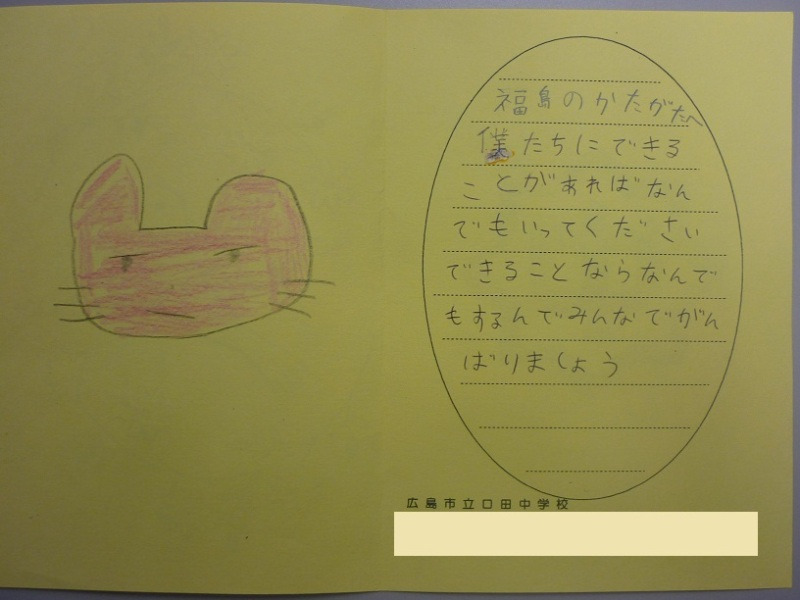 福島のかたがたへ
僕たちにできる
ことがあればなん
でもいってください
できることならなんで
もするんでみんなでがん
ばりましょう
広島市立口田中学校